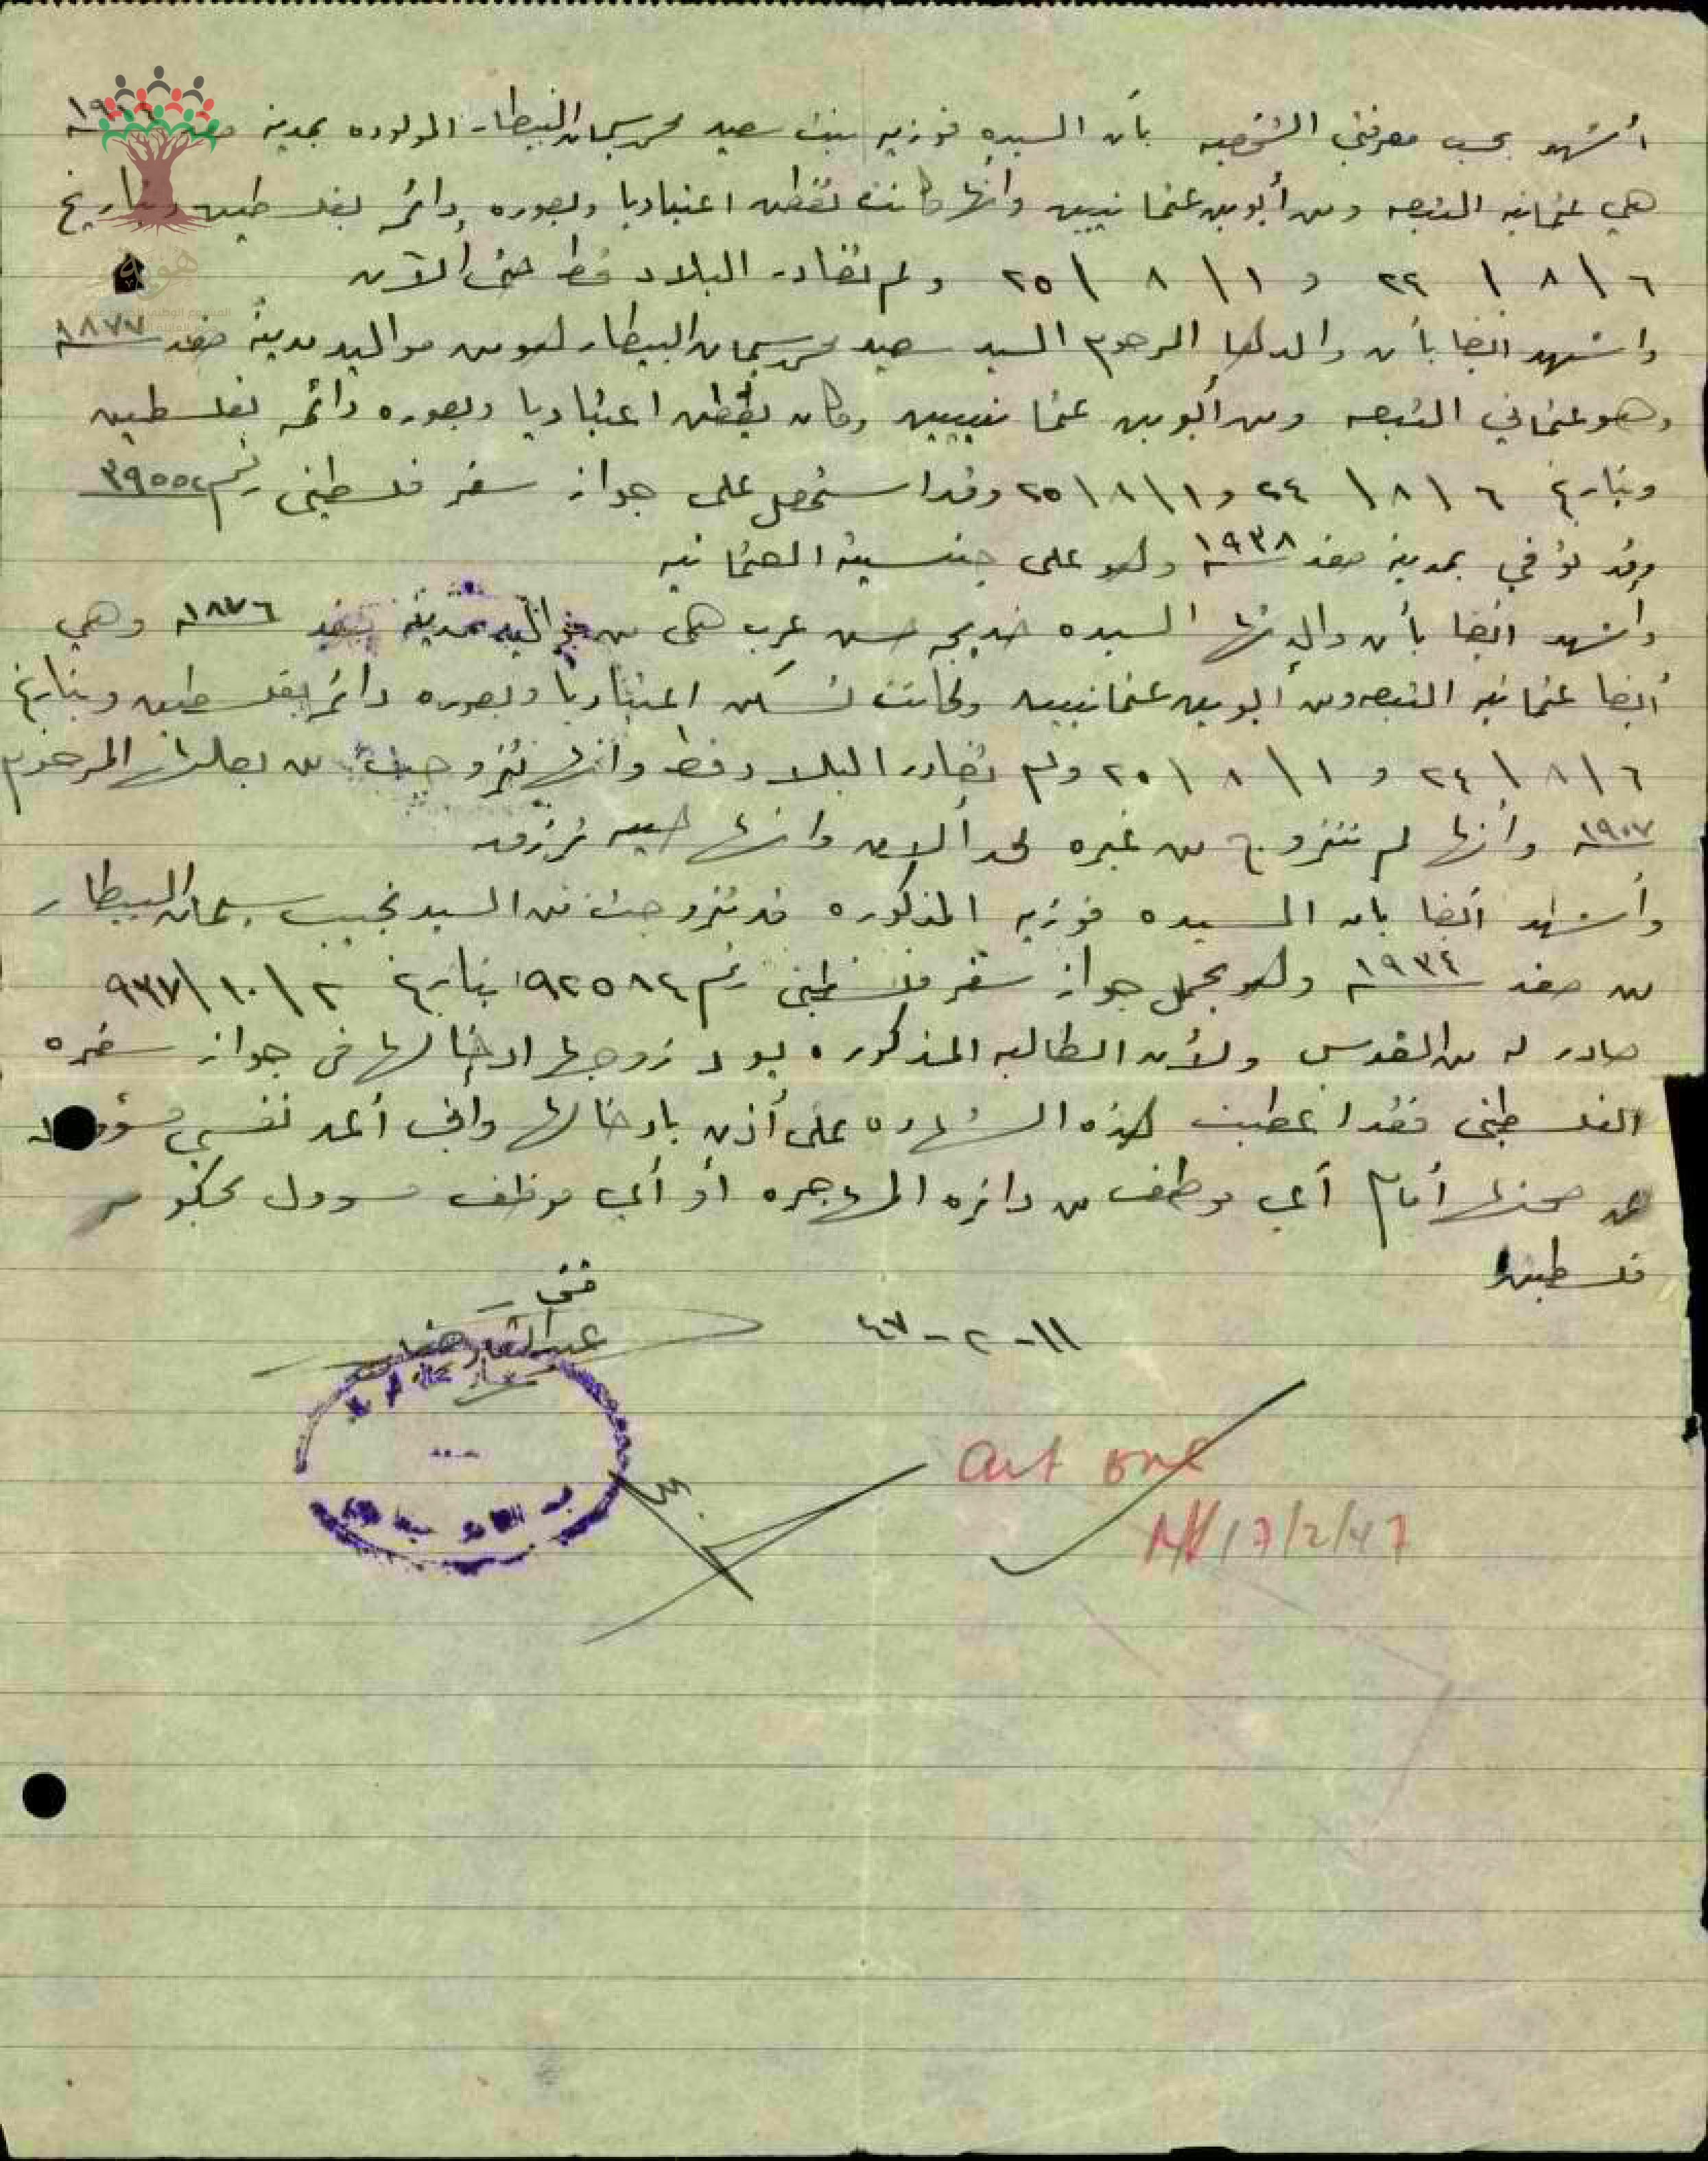 أشهد بحسب معرفتي الشخصيه بأن السيده فوزيه بنت سعيد محمد سليمان البيطار المولوده بمدينة صفد
هي عثمانيه التبعه ومن أبوين عثمانيين وانها كانت تقطن اعتياديا وبصوره دائمه بفلسطين وبتاريخ
٦ \ ٨ \ ٢٤ و ١ \ ٨ \ ٢٥ ولم تغادر البلاد قط حتى الآن
واشهد ايضا بأن والدها المرحوم السيد سعيد محمد سليمان البيطار هو من مواليد مدينة صفد سنة ١٨٧٧
وهو عثماني التبعه ومن أبوين عثمانيين وكان يقطن اعتياديا وبصوره دائمه بفلسطين
وبتاريخ ٦ \ ٨ \ ٢٤ و ١ \ ٨ \ ٢٥ وقد استحصل على جواز سفر فلسطيني رقم ٣٩٥٥
وقد توفي بمدينة صفد سنة ١٩٣٨ وهو على جنسيته العثمانيه
وأشهد ايضا بأن والدتها السيده خديجه حسن عرب هي من مواليد مدينة صفد ١٨٧٦ وهي
أيضا عثمانيه التبعه ومن أبوين عثمانيين وكانت تسكن اعتياديا وبصوره دائمه بفلسطين وبتاريخ
٦ \ ٨ \ ٢٤ و ١ \ ٨ \ ٢٥ ولم تغادر البلاد قط وانها تزوجت من بعلها المرحوم
سنة ١٩٠٧ وأنها لم تتزوج من غيره لحد ألان وانها حيه ترزق
وأشهد أيضا بان السيده فوزيه المذكوره قد تزوجت من السيد نجيب سليمان البيطار
من صفد سنة ١٩٣٤ وهو يحمل جواز سفر فلسطيني رقم ٩٢٥٨٤ بتاريخ ٢ \ ١٠ \ ٩٣٧
صادر له من القدس ولأن الطالبه المذكوره يود زوجها ادخالها في جواز سفره
الفلسطيني فقد اعطيت هذه الشهاده على أذن بادخالها واني أعد نفسي
عن صحتها أمام أي موظف من دائرة المهاجره أو أي موظف مسؤول
فلسطين
مختار
عبد القادر
١١ - ٢ - ٤٧
Art one
17/2/47